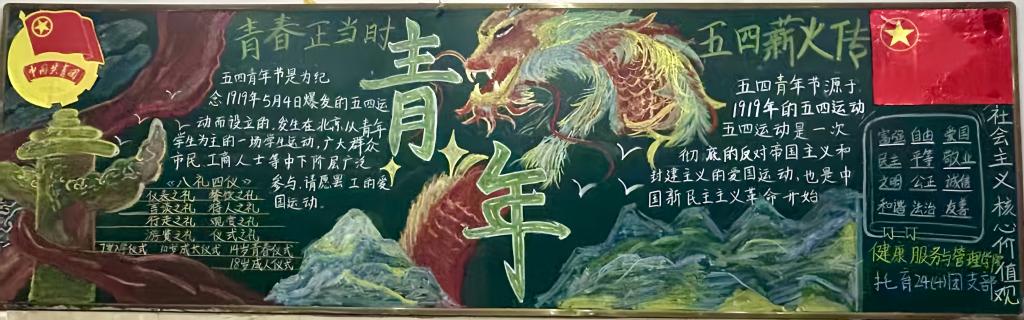 中国共青团
青春正当时
五四青年节是为纪
念1919年5月4日爆发的五四运
动而设立的,发生在北京,从青年
学生为主的一场学生运动,广大群众
市民、工商人士等中下阶层广泛
参与,请愿罢工的爱
国运动。
《八礼四仪》
仪表之礼 餐饮之礼
言谈之礼 待人之礼
行走之礼 观赏之礼
游览之礼 仪式之礼
7岁入学仪式 10岁成长仪式 14岁青春仪式
18岁成人仪式
青年
五四薪火传
五四青年节源于
1919年的五四运动
五四运动是一次
彻底的反对帝国主义和
封建主义的爱国运动,也是中
国新民主主义革命开始
富强 自由 爱国
民主 平等 敬业
文明 公正 诚信
和谐 法治 友善
社会主义核心价值观
健康服务与管理学院
托育24(4)团支部